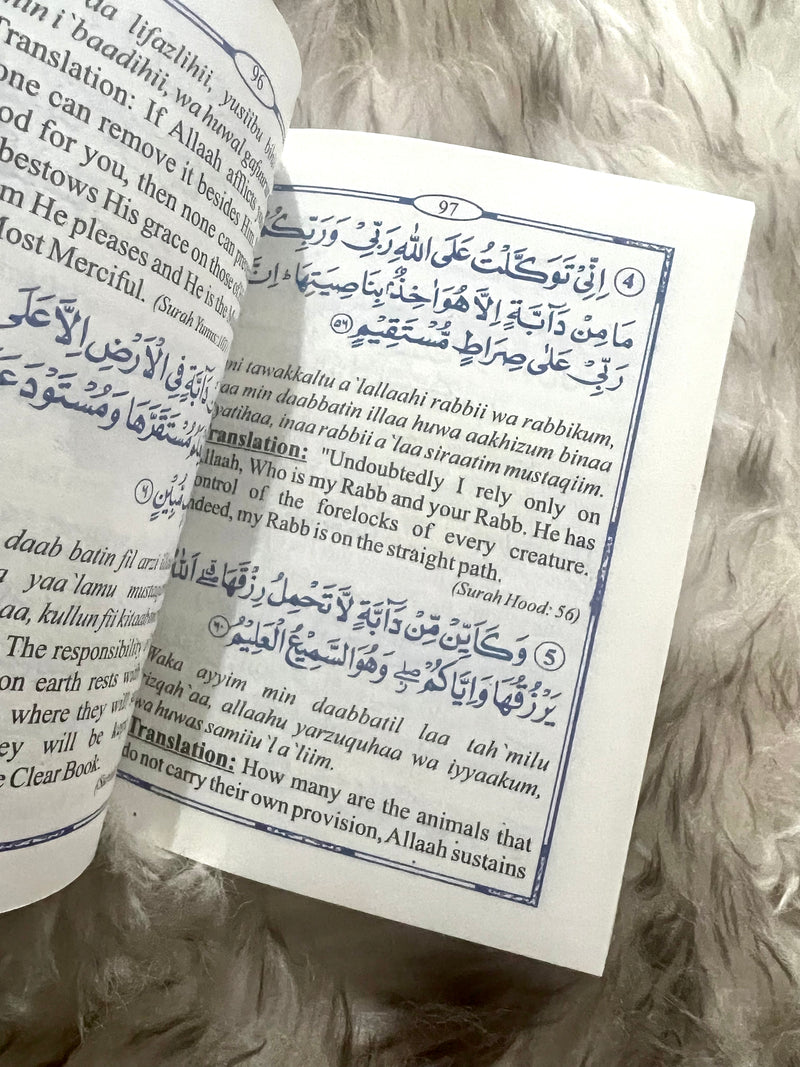 96
lifazlihii, yusiibu
i`baadihii, wa huwal gafuur
Translation: If Allaah afflicts you
one can remove it besides Him
for you, then none can
bestows His grace on those of
He pleases and He is the
Most Merciful. (Surah Yunus:
دَآبَّةٍ فِي الْاَرْضِ اِلَّا عَلَى
مُسْتَقَرَّهَا وَمُسْتَوْدَعَ
مُّبِيْنٍ ۶
daab batin fil arzi
yaa`lamu
kullun fii kitaab
The responsibility
on earth rests with
where they will
will be
Clear Book.
97
④ اِنِّيْ تَوَكَّلْتُ عَلَى اللّٰهِ رَبِّيْ وَرَبِّكُ
مَا مِنْ دَآبَّةٍ اِلَّا هُوَ اٰخِذٌۢ بِنَاصِيَتِهَا ؕ اِنَّ
رَبِّيْ عَلٰى صِرَاطٍ مُّسْتَقِيْمٍ ۵۶
ni tawakkaltu a`lallaahi rabbii wa rabbikum,
min daabbatin illaa huwa aakhizum binaa
yatihaa, inaa rabbii a`laa siraatim mustaqiim.
Translation: "Undoubtedly I rely only on
Allaah, Who is my Rabb and your Rabb. He has
control of the forelocks of every creature.
Indeed, my Rabb is on the straight path.
(Surah Hood: 56)
⑤ وَكَاَيِّنْ مِّنْ دَآبَّةٍ لَّا تَحْمِلُ رِزْقَهَا ۖ اَللّٰهُ
يَرْزُقُهَا وَاِيَّاكُمْ ۖ وَهُوَ السَّمِيْعُ الْعَلِيْمُ ۶۰
Waka ayyim min daabbatil laa tah`milu
rizqah`aa, allaahu yarzuquhaa wa iyyaakum,
wa huwas samiiu`l a`liim.
Translation: How many are the animals that
do not carry their own provision, Allaah sustains